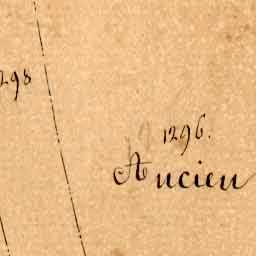 298
1296.
Ancien